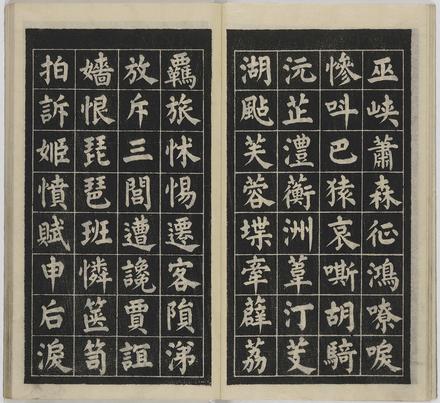 巫峽蕭森征鴻嘹唳
慘呌巴猿哀嘶胡騎
沅芷澧蘅洲葦汀芰
湖颭芙蓉堞牽薜荔
覊旅怵惕遷客隕涕
放斥三閭遭讒賈誼
嬙恨琵琶班憐篋笥
拍訴姬憤賦申后淚